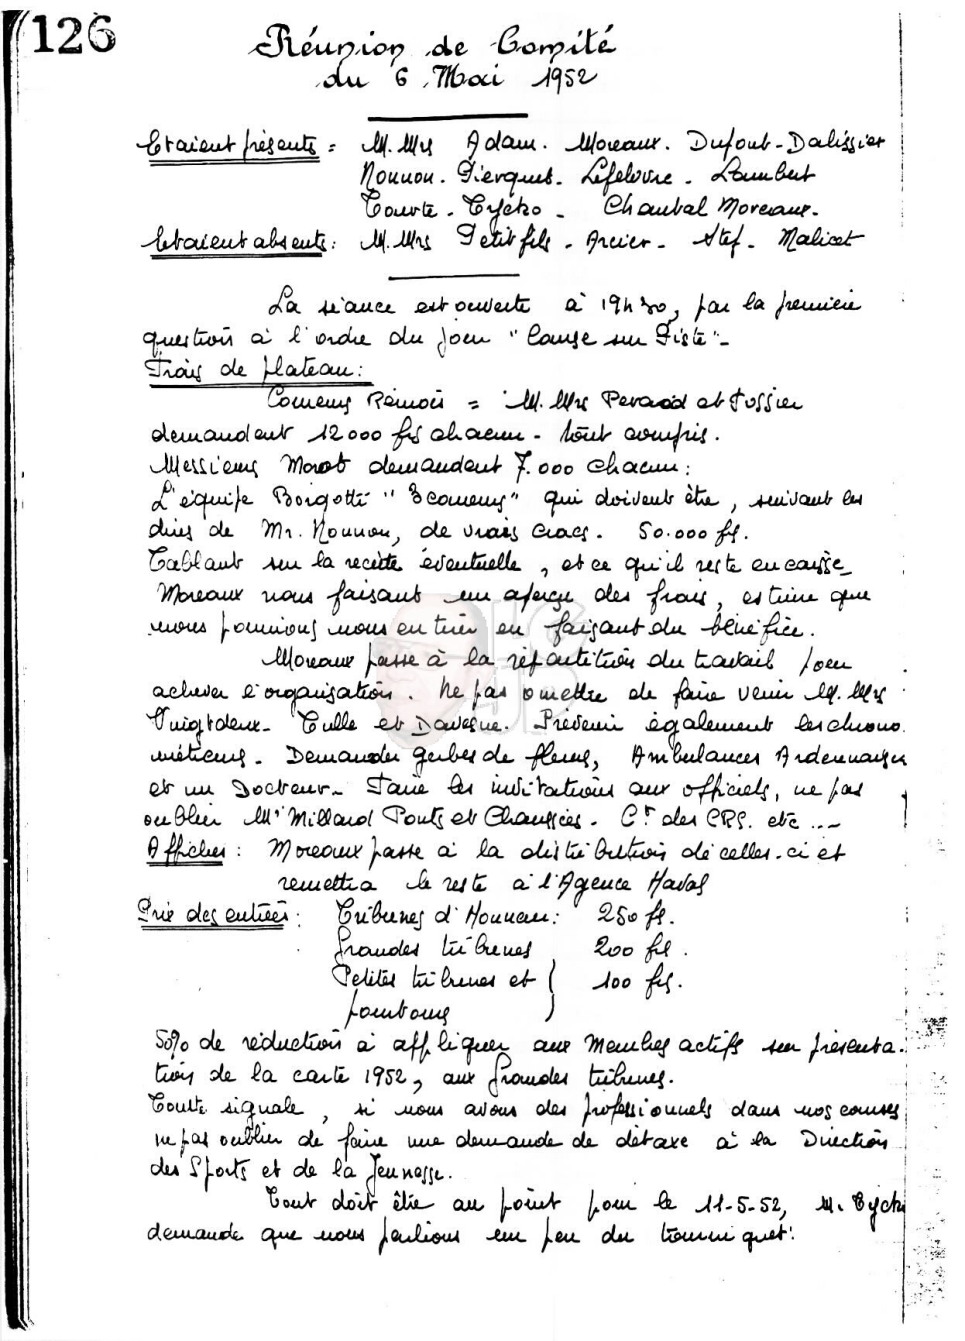 126
Réunion de Comité
du 6 Mai 1952
Etaient présents = M.Mrs Adam. Moreaux. Dufout-Dalissier
Nounon. Pierquet. Lefebvre - Lambert
Tourte - Cycko - Chantal Moreaux.
Etaient absents : M.Mrs Petitfils - Arcier - Stef - Malicet
La séance est ouverte à 19h30, par la première
question à l'ordre du jour "Course sur Piste"-
Frais de plateau :
Coureurs Rémois = M.Mrs et Tossier
demandent 12000 frs chacun - tout compris.
Messieurs demandent 7.000 chacun :
L'équipe Borgotti "3 coureurs" qui doivent être, suivant les
dires de Mr. Nounon, de vrais cracs. 50.000 frs.
Tablant sur la recette éventuelle, et ce qu'il reste en caisse_
Moreaux nous faisant un aperçu des frais, estime que
nous pourrions nous en tirer en faisant du bénéfice.
Moreaux passe à la répartition du travail pour
achever l'organisation. Ne pas omettre de faire venir M.Mrs
Vuigtdeux - Tulle et Davesne. Prévenir également les chrono
métreurs - Demander gerbes de fleurs, Ambulances Ardennaises
et un Docteur - Faire les invitations aux officiels, ne pas
oublier Mr Millard Ponts et Chaussées - Ct des CRS. etc ...
Affiches : Moreaux passe à la distribution de celles-ci et
remettra le reste à l'Agence Havas
Prix des entrées : Tribunes d'Honneur : 250 frs.
Grandes tribunes 200 frs.
Petites tribunes et } 100 frs.
pourtours
50% de réduction à appliquer aux Membres actifs sur présenta-
tion de la carte 1952, aux grandes tribunes.
Tourte signale, si nous avons des professionnels dans nos courses
ne pas oublier de faire une demande de détaxe à la Direction
des Sports et de la Jeunesse.
Tout doit être au point pour le 11-5-52, M. Cycko
demande que nous parlions un peu du tourniquet.